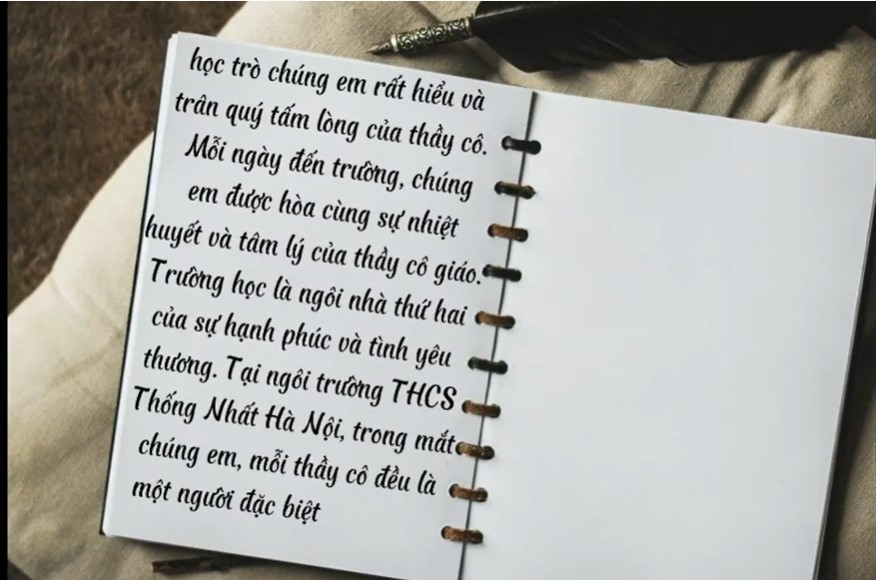 học trò chúng em rất hiểu và
trân quý tấm lòng của thầy cô.
Mỗi ngày đến trường, chúng
em được hòa cùng sự nhiệt
huyết và tâm lý của thầy cô giáo.
Trường học là ngôi nhà thứ hai
của sự hạnh phúc và tình yêu
thương. Tại ngôi trường THCS
Thống Nhất Hà Nội, trong mắt
chúng em, mỗi thầy cô đều là
một người đặc biệt